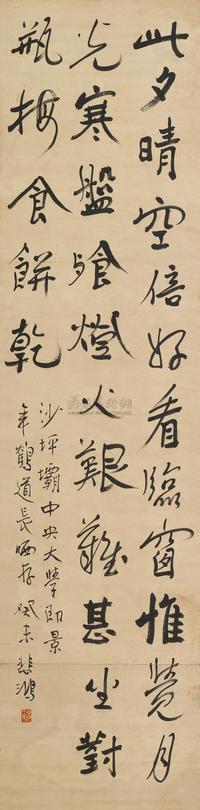 此夕晴空倍好看臨窗惟覺月
光寒盤飧燈火艱難甚坐對
瓶梅食餅乾
沙坪壩中央大學即景
年鶴道長哂存 癸未 悲鴻